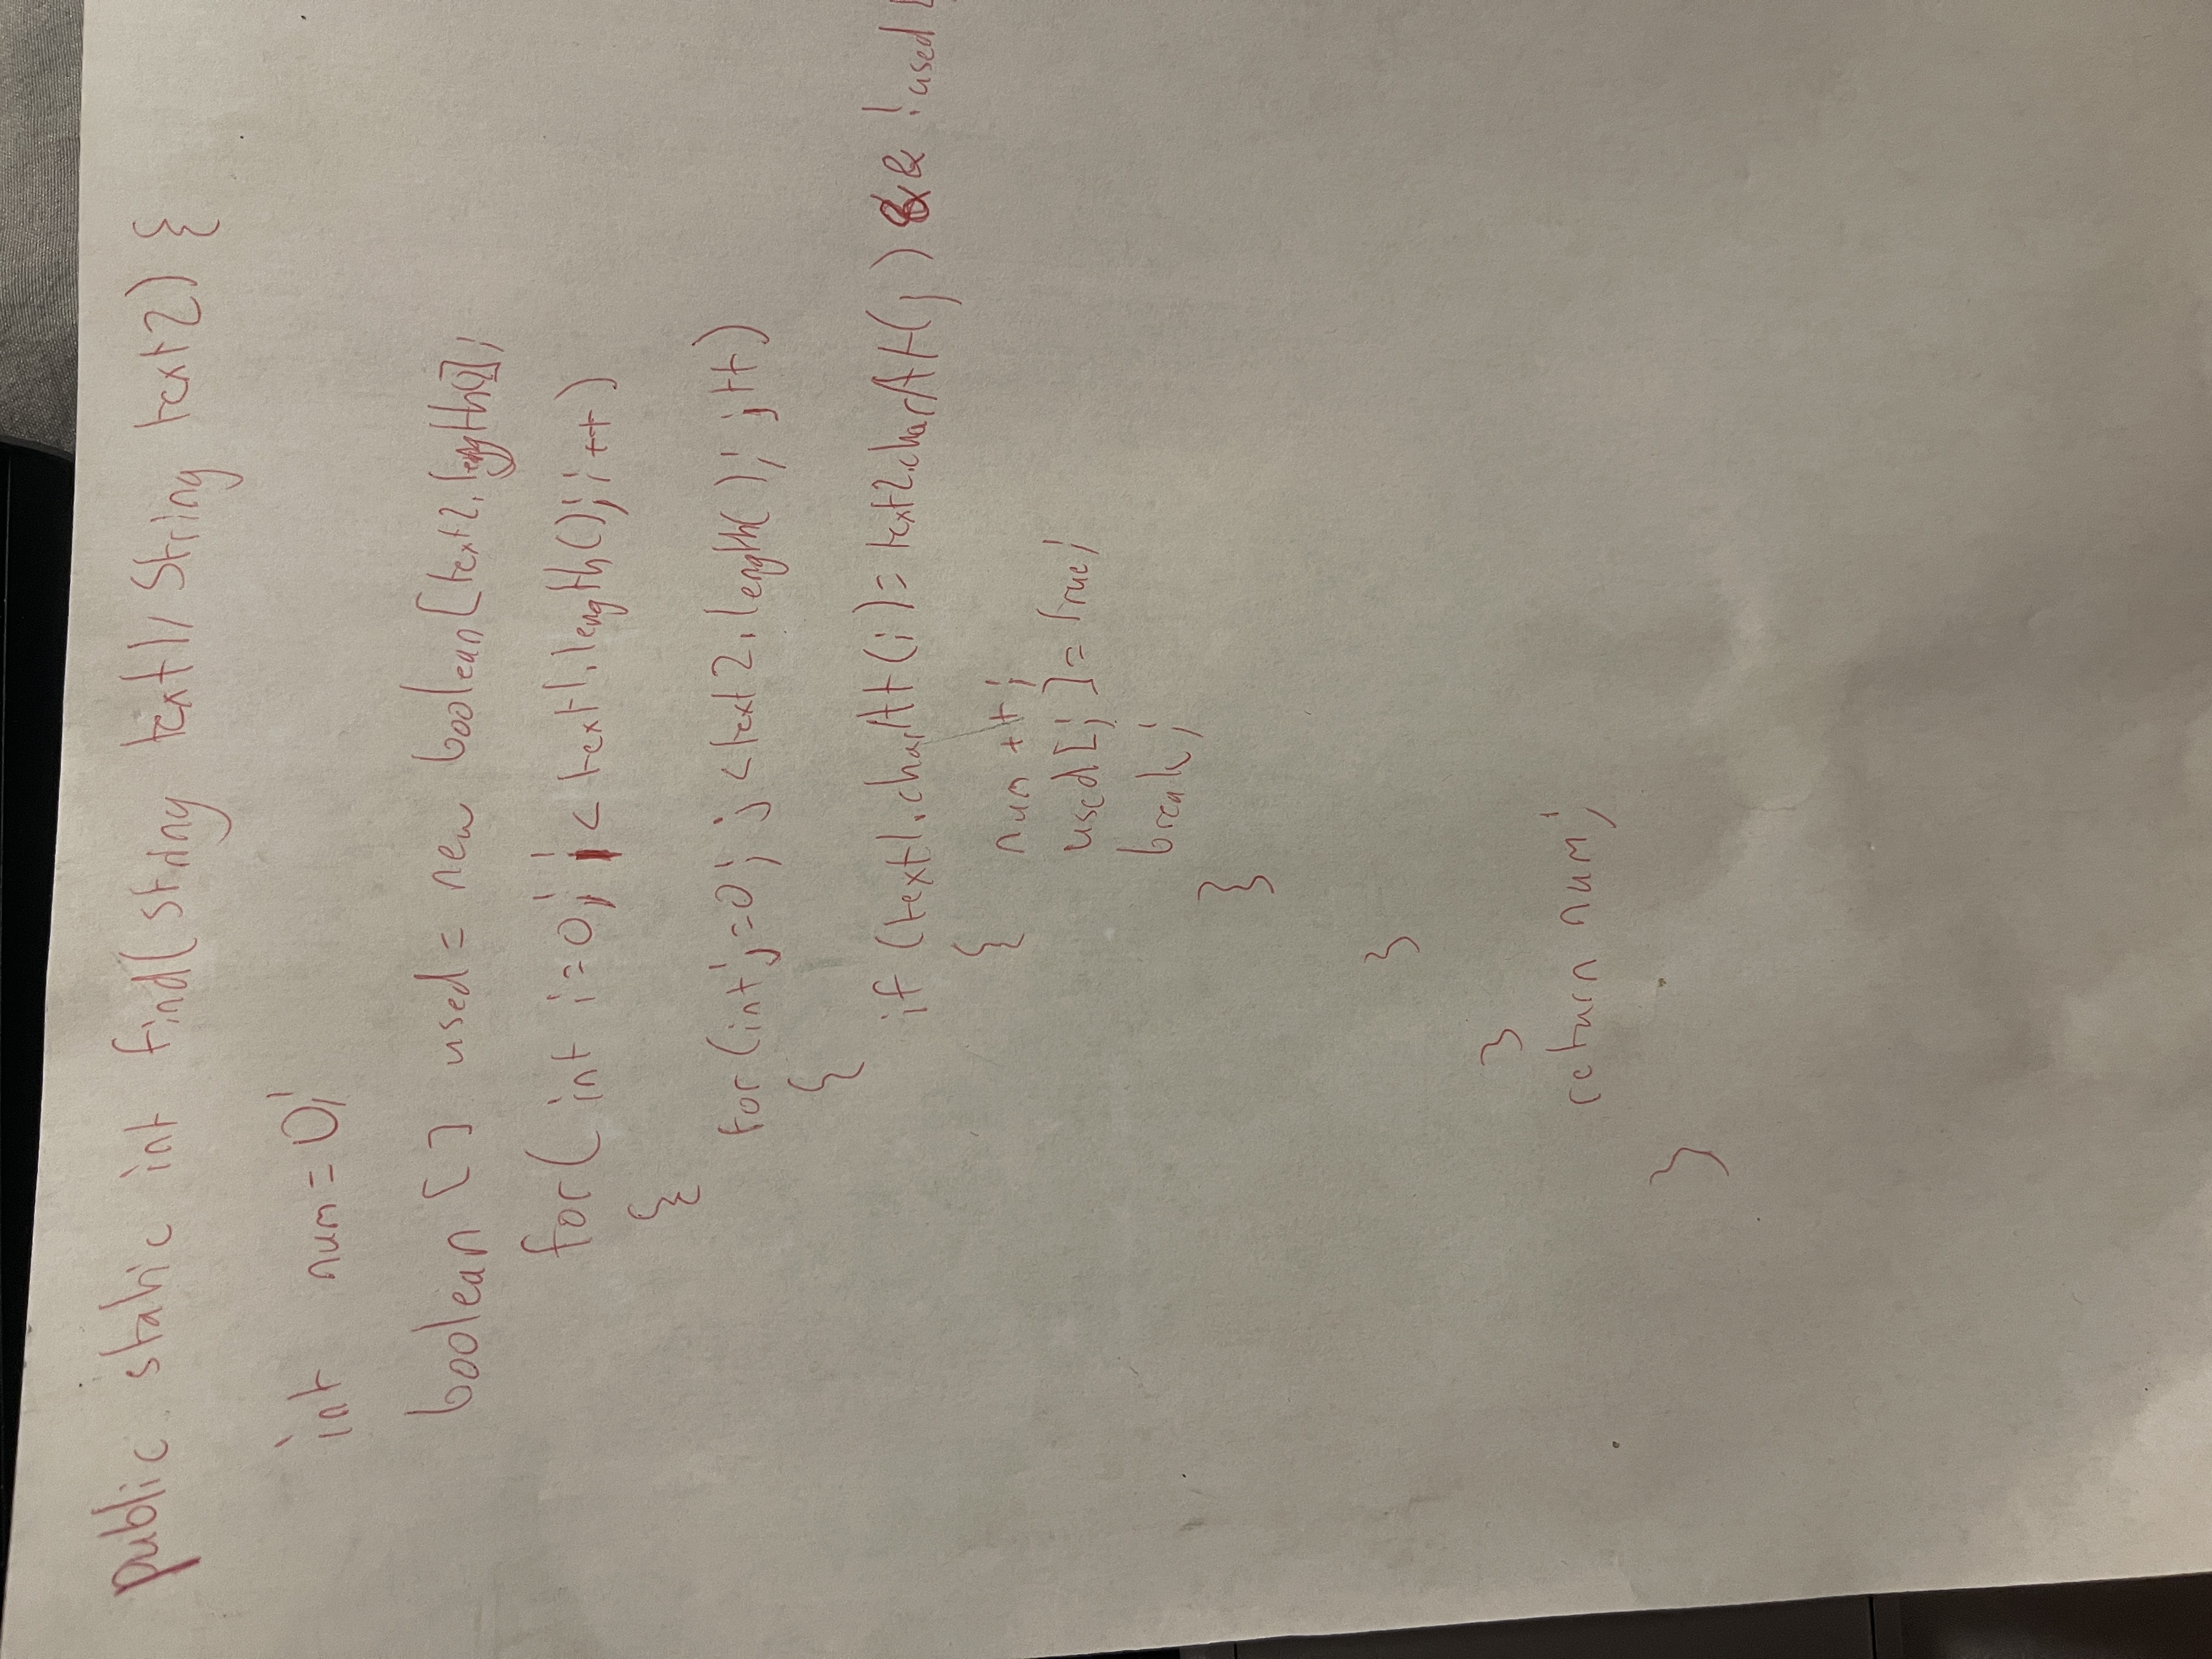 public static int find(String text1, String text2) {
int num = 0;
boolean [] used = new boolean[text2.length()];
for( int i=0; i < text1.length(); i++)
{
for (int j=0; j <text2.length(); j++)
{
if (text1.charAt(i)= text2.charAt(j) && !used [
{ num ++;
used[j]= True;
break;
}
}
}
return num;
}